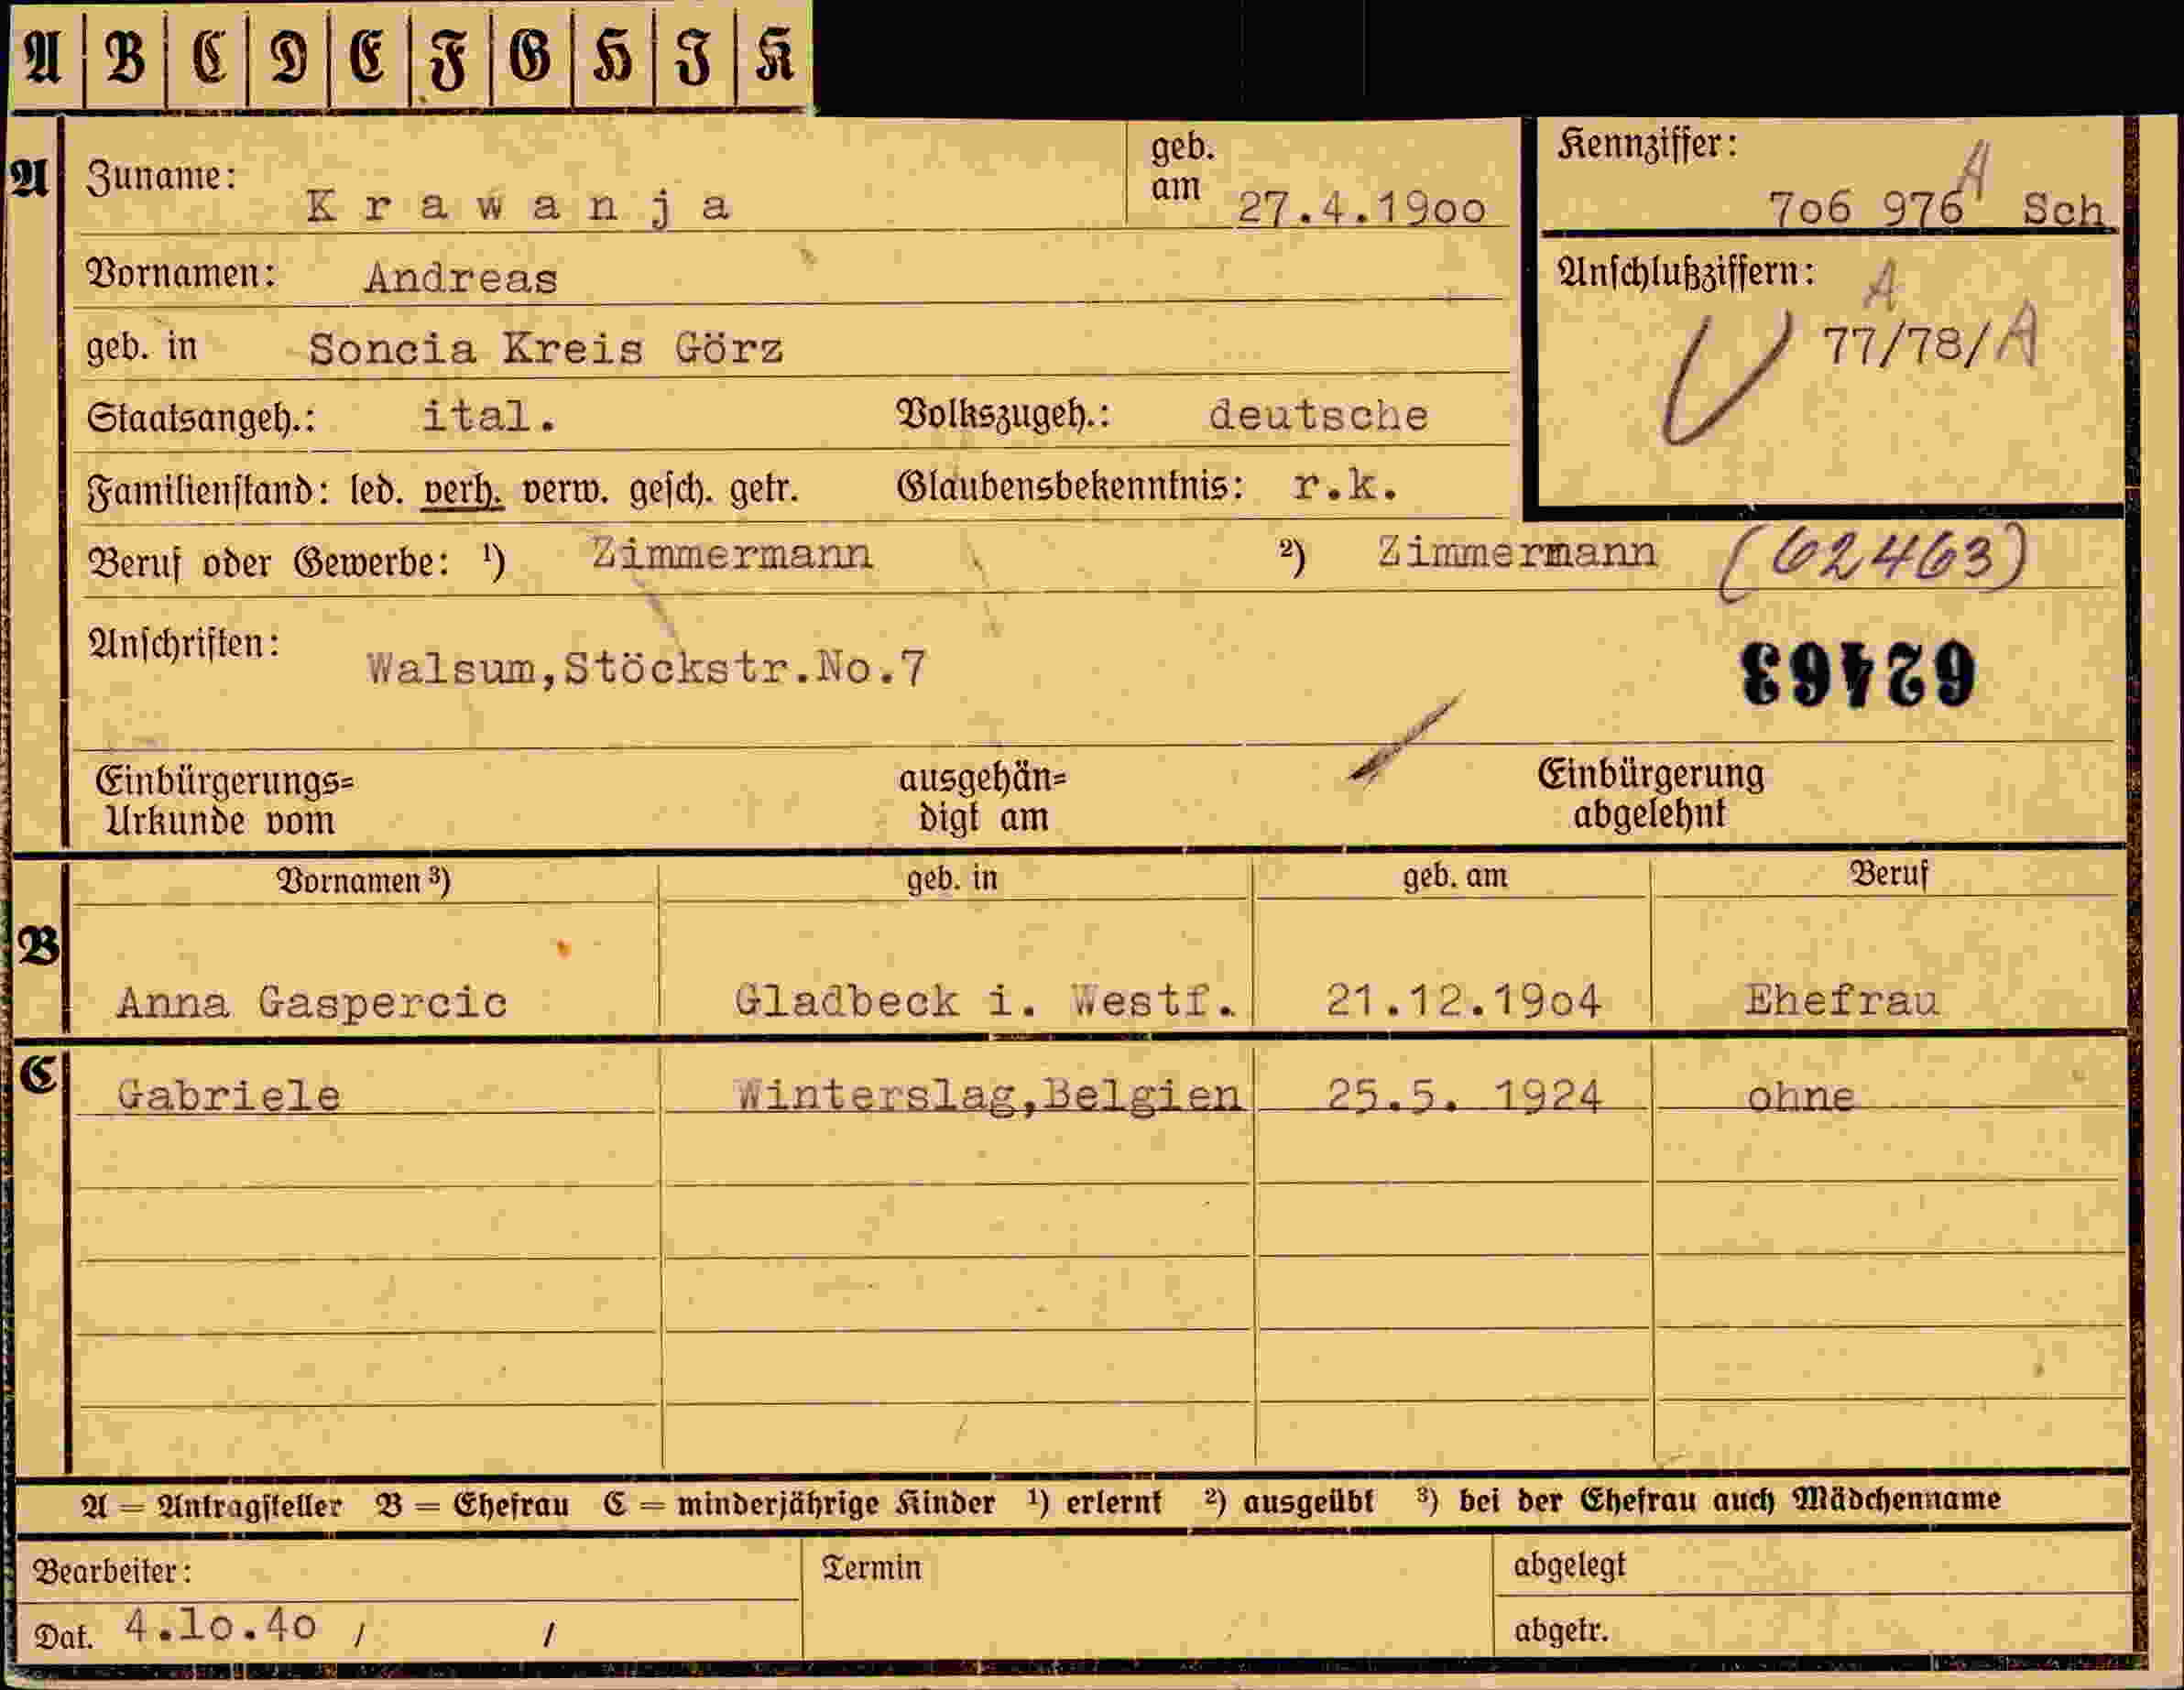 A B C D E F G H I K
A Zuname: Krawanja geb. am 27.4.19oo
Kennziffer: 7o6 976 A Sch
Vornamen: Andreas
Anschlußziffern: A
77/78/A
geb. in Soncia Kreis Görz
Staatsangeh.: ital. Volkszugeh.: deutsche
Familienstand: led. verh. verw. gesch. getr. Glaubensbekenntnis: r.k.
Beruf oder Gewerbe: 1) Zimmermann 2) Zimmermann (62463)
Anschriften: Walsum,Stöckstr.No.7
62463
Einbürgerungs=
Urkunde vom
ausgehän=
digt am
Einbürgerung
abgelehnt
Vornamen 3) geb. in geb. am Beruf
B Anna Gaspercic Gladbeck i. Westf. 21.12.19o4 Ehefrau
C Gabriele Winterslag,Belgien 25.5. 1924 ohne
A = Antragsteller B = Ehefrau C = minderjährige Kinder 1) erlernt 2) ausgeübt 3) bei der Ehefrau auch Mädchenname
Bearbeiter: Termin abgelegt
Dat. 4.1o.4o / / abgetr.